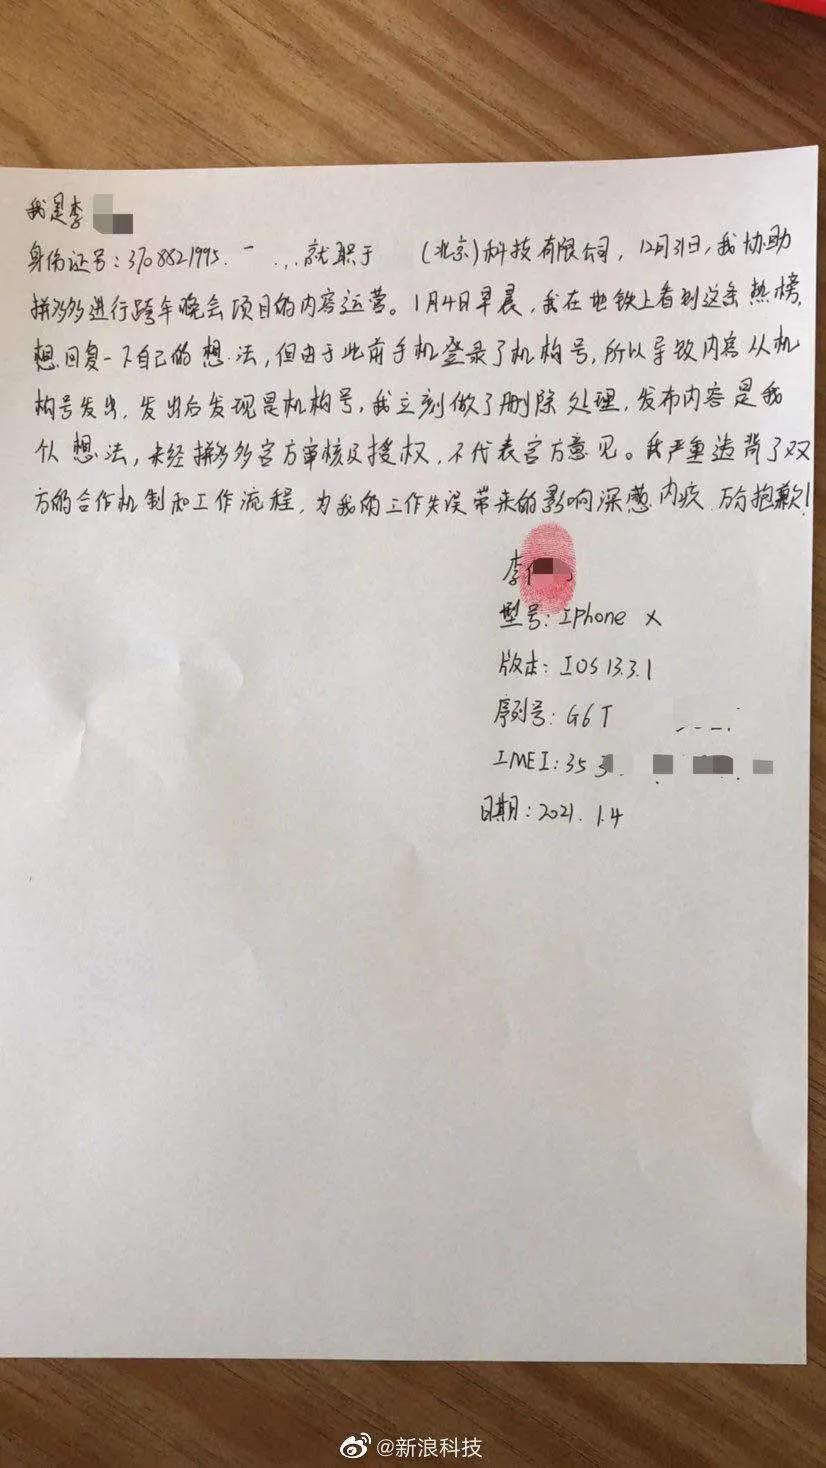 我是李
身份证号:3708821995. 就职于 (北京)科技有限公司,12月31日,我协助
拼多多进行跨年晚会项目的内容运营。1月4日早晨,我在地铁上看到这条热榜,
想回复一下自己的想法,但由于此前手机登录了机构号,所以导致内容从机
构号发出,发出后发现是机构号,我立刻做了删除处理,发布内容是我
个人想法,未经拼多多官方审核及授权,不代表官方意见。我严重违背了双
方的合作机制和工作流程,为我的工作失误带来的影响深感内疚,万分抱歉!
李
型号:IPhone X
版本:IOS 13.3.1
序列号:G6T
IMEI:353
日期:2021.1.4
@新浪科技